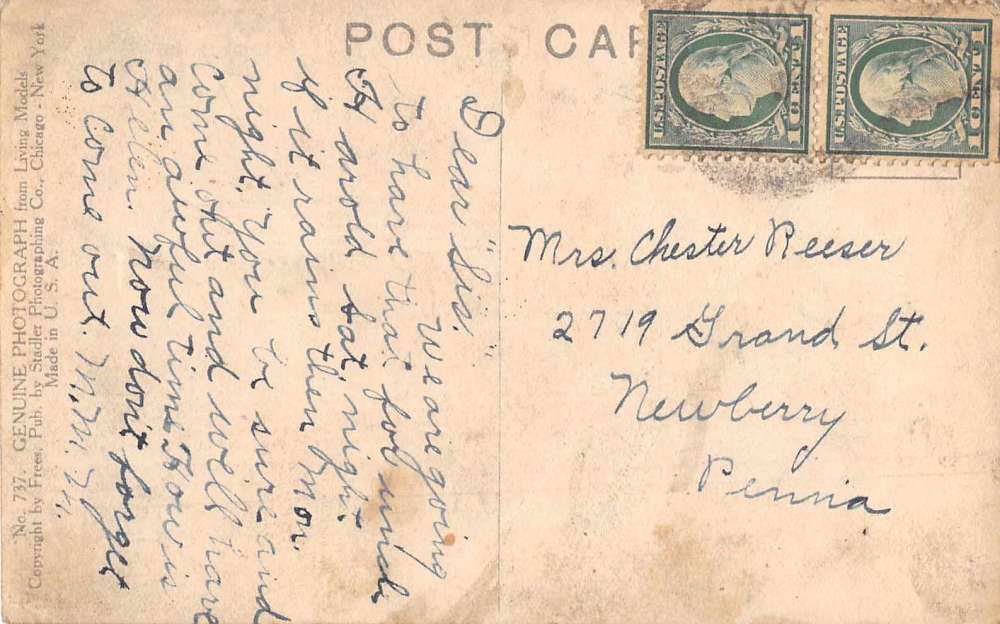 POST CAR
U.S. POSTAGE
1 CENT 1
U.S. POSTAGE
1 CENT 1
Dear "Sis."
We are going
to have that for uncle
Harold Sat. night
if it rains then Mon.
night. You be sure and
come out and we'll have
an awful time. How is
Helen. Now don't forget
to come out. M.M.
Mrs. Chester Reeser
2719 Grand St.
Newberry
Penna
No. 737. GENUINE PHOTOGRAPH from Living Models
Copyright by Frees. Pub. by Stadler Photographing Co., Chicago - New York
Made in U. S. A.